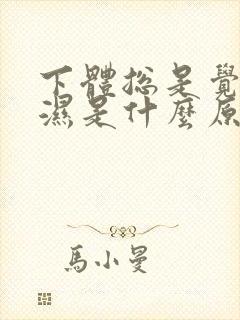 下體總是覺
濕是什麼原
馬小曼